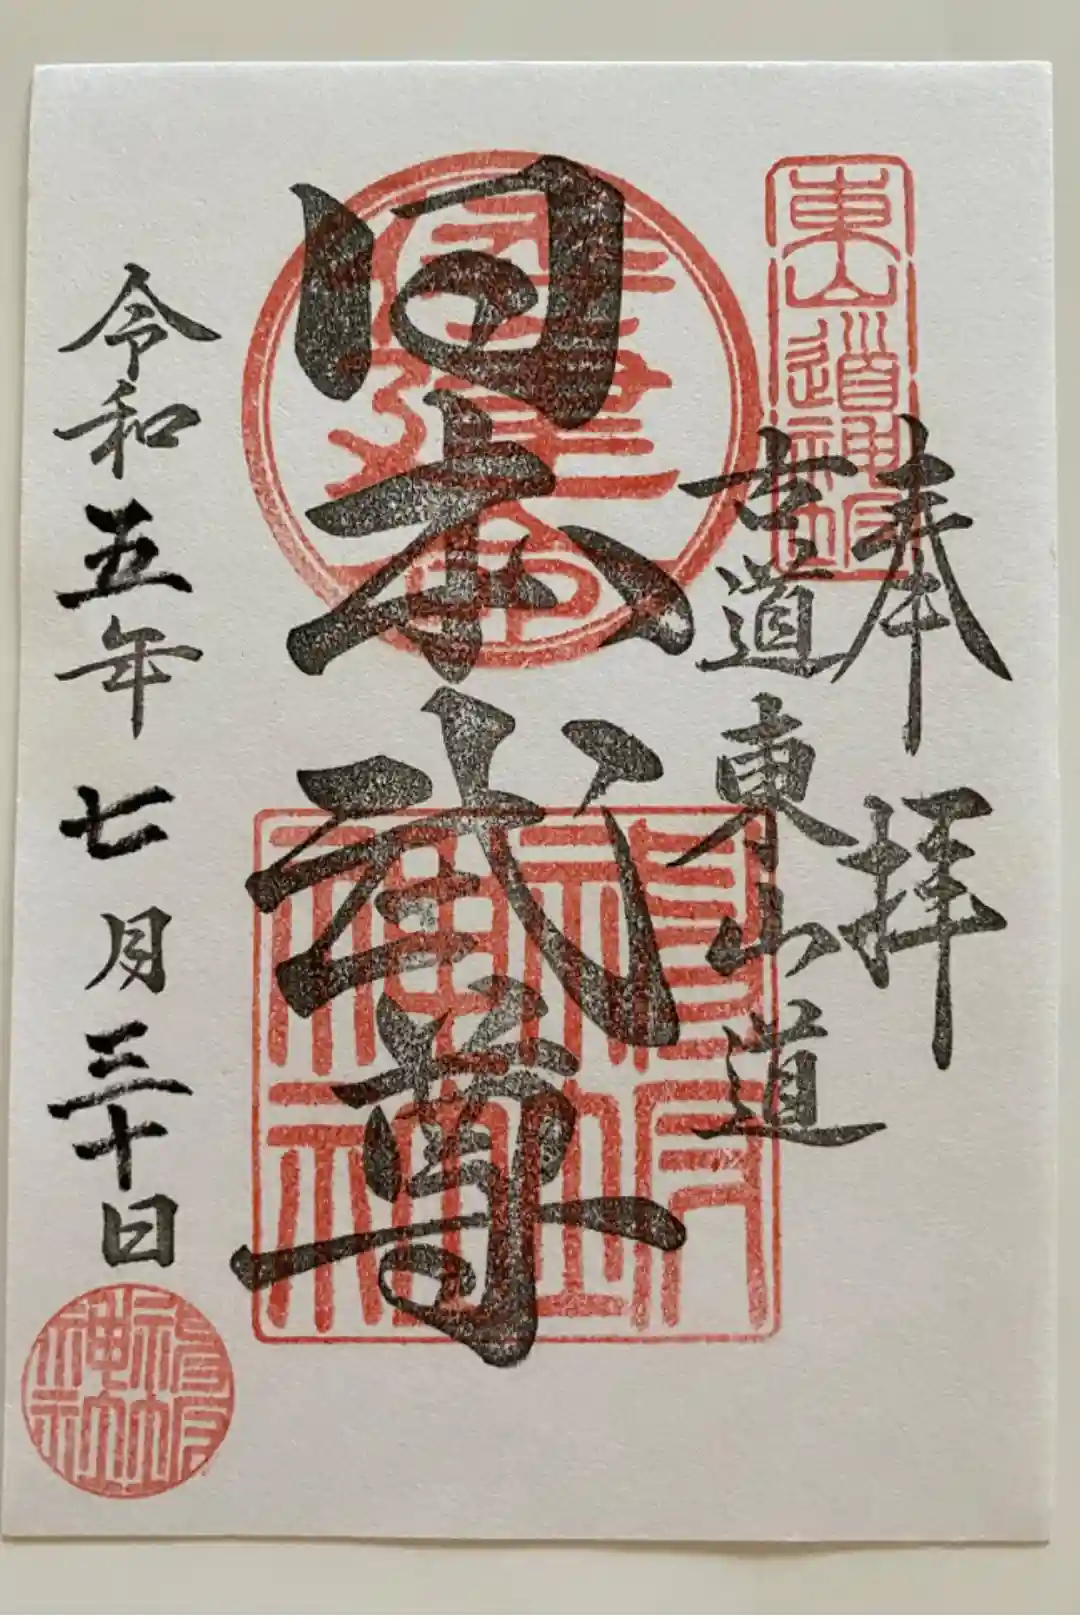 東山道神坂
奉拝
古道東山道
日本武尊
令和五年七月三十日